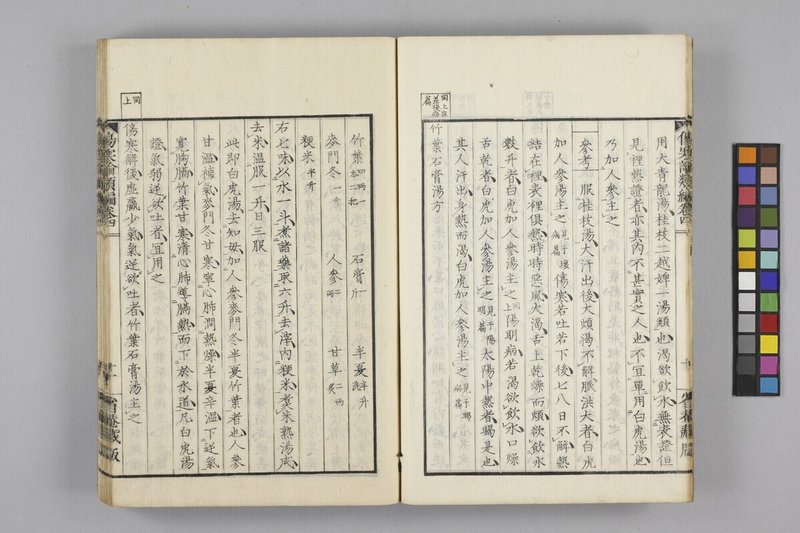 用大青龍湯桂枝二越婢一湯類也渴欲飲水無表證但
見裡熱證者亦其内不甚實之人也不宜單用白虎湯也
乃加人參主之
參考 服桂枝湯大汗出後大煩渴不解脈洪大者白虎
加人參湯主之 傷寒若吐若下後七八日不解熱
結在裡表裡俱熱時時惡風大渴舌上乾燥而煩欲飲水
數升者白虎加人參湯主之 同上 陽明病若渴欲飲水口燥
舌乾者白虎加人參湯主之 見于陽明篇 太陽中熱者暍是也
其人汗出身熱而渴白虎加人參湯主之 見于暍病篇
竹葉石膏湯方
竹葉 二把 石膏 一斤 半夏 半升洗
麥門冬 一升 人參 甘草 二兩炙
粳米 半升
右七味以水一斗煮諸藥取六升去滓内粳米煮米熟湯成
去米温服一升日三服
此即白虎湯去知母加人參麥門冬半夏竹葉者也人參
甘温補氣麥門冬甘寒寧心肺潤熱燥半夏辛温下逆氣
寛胸膈竹葉甘寒清心肺導膈熱而下於水道凡白虎湯
證氣弱逆欲吐者宜用之
同上
傷寒解後虚羸少氣氣逆欲吐者竹葉石膏湯主之
傷寒論類編卷四